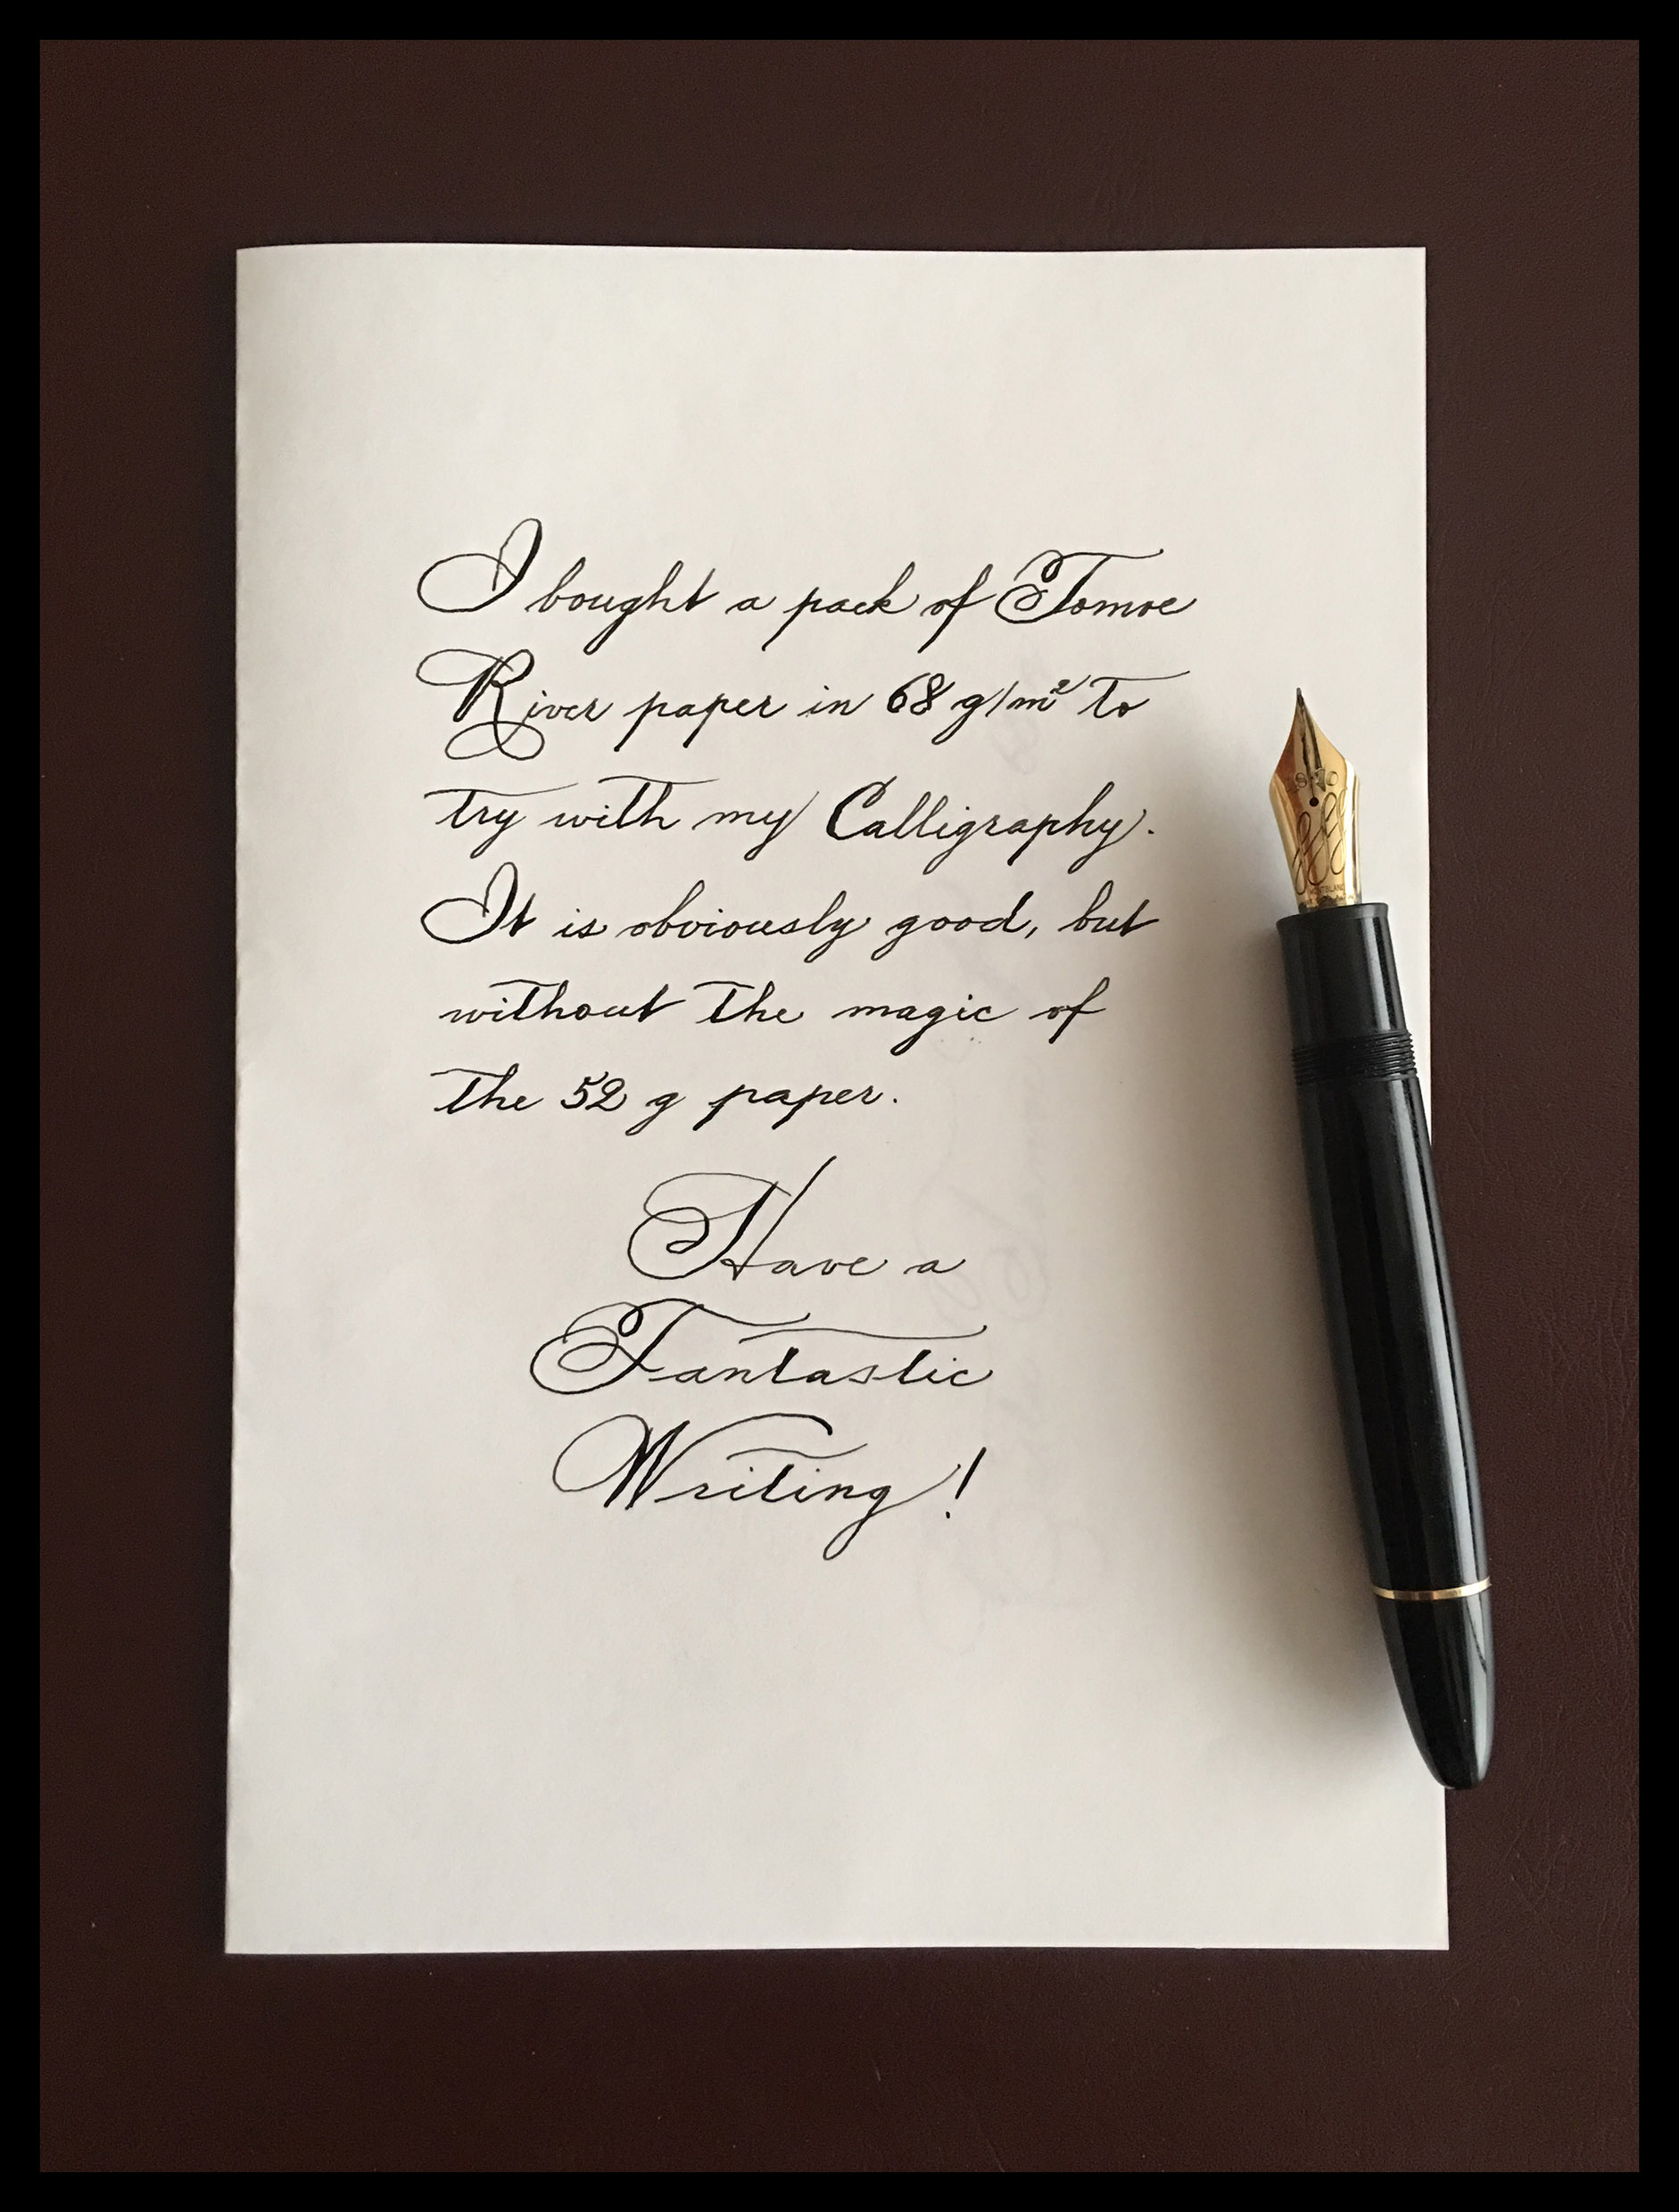 I bought a pack of Tomoe
River paper in 68 g/m² to
try with my Calligraphy.
It is obviously good, but
without the magic of
the 52 g paper.
Have a
Fantastic
Writing!
MONTBLANC